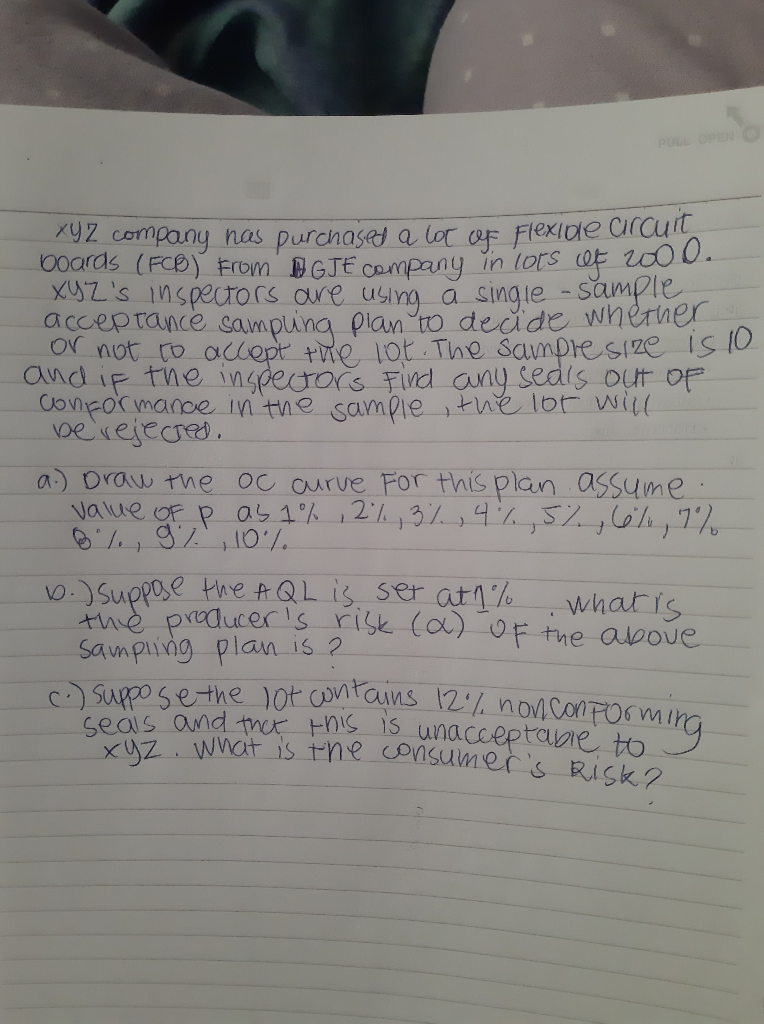 PULL OPEN
XYZ company has purchased a lot of Flexible circuit
boards (FCB) From GJE company in lots of 2000.
XYZ's inspectors are using a single - sample
acceptance sampling plan to decide whether
or not to accept the lot. The sample size is 10
and if the inspectors Find any seals out of
conformance in the sample, the lot will
be rejected.
a.) Draw the OC curve For this plan assume.
value of p as 1%, 2%, 3%, 4%, 5%, 6%, 7%
8%, 9%, 10%.
b.) Suppose the AQL is set at 1%. what is
the producer's risk (α) OF the above
sampling plan is?
c.) Suppose the lot contains 12% nonconforming
seals and that this is unacceptable to
XYZ. What is the consumer's Risk?